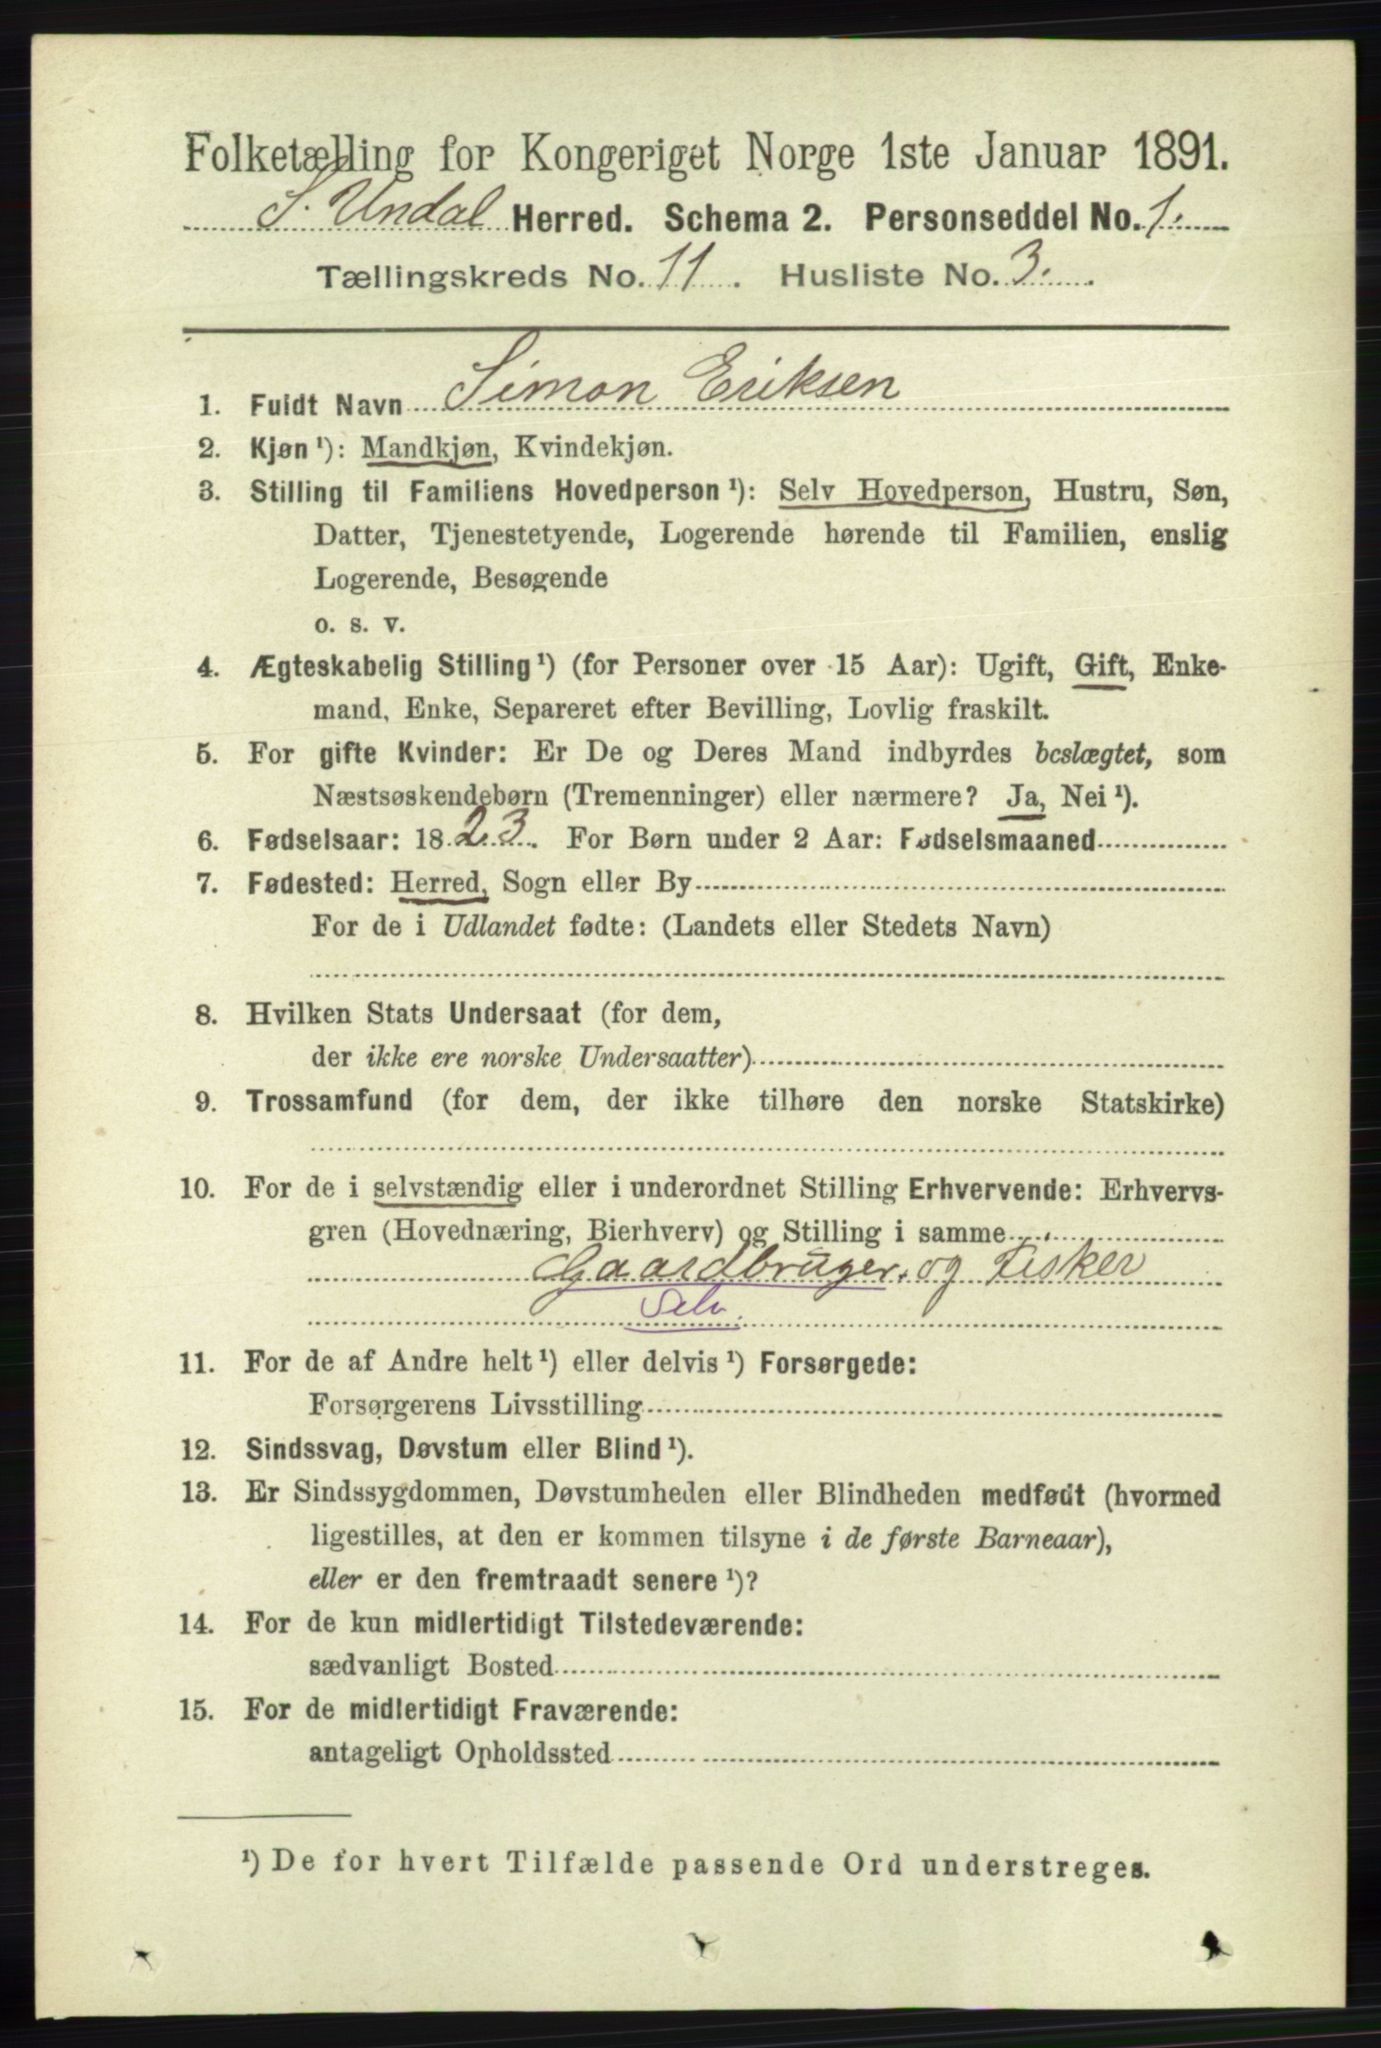 Folketælling for Kongeriget Norge 1ste Januar 1891.
S. Undal Herred. Schema 2. Personseddel No. 1.
Tællingskreds No. 11. Husliste No. 3.
1. Fuldt Navn Simon Eriksen
2. Kjøn ¹): Mandkjøn, Kvindekjøn.
3. Stilling til Familiens Hovedperson ¹): Selv Hovedperson, Hustru, Søn,
Datter, Tjenestetyende, Logerende hørende til Familien, enslig
Logerende, Besøgende
o. s. v.
4. Ægteskabelig Stilling ¹) (for Personer over 15 Aar): Ugift, Gift, Enke-
mand, Enke, Separeret efter Bevilling, Lovlig fraskilt.
5. For gifte Kvinder: Er De og Deres Mand indbyrdes beslægtet, som
Næstsøskendebørn (Tremenninger) eller nærmere? Ja, Nei ¹).
6. Fødselsaar: 1823. For Børn under 2 Aar: Fødselsmaaned
7. Fødested: Herred, Sogn eller By
For de i Udlandet fødte: (Landets eller Stedets Navn)
8. Hvilken Stats Undersaat (for dem,
der ikke ere norske Undersaatter)
9. Trossamfund (for dem, der ikke tilhøre den norske Statskirke)
10. For de i selvstændig eller i underordnet Stilling Erhvervende: Erhvervs-
gren (Hovednæring, Bierhverv) og Stilling i samme
Gaardbruger. og Fisker
Selv.
11. For de af Andre helt ¹) eller delvis ¹) Forsørgede:
Forsørgerens Livsstilling
12. Sindssvag, Døvstum eller Blind ¹).
13. Er Sindssygdommen, Døvstumheden eller Blindheden medfødt (hvormed
ligestilles, at den er kommen tilsyne i de første Barneaar),
eller er den fremtraadt senere ¹)?
14. For de kun midlertidigt Tilstedeværende:
sædvanligt Bosted
15. For de midlertidigt Fraværende:
antageligt Opholdssted
¹) De for hvert Tilfælde passende Ord understreges.